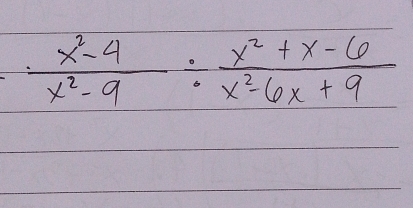 x²-4 / x²-9 ÷ x² + x - 6 / x²-6x + 9